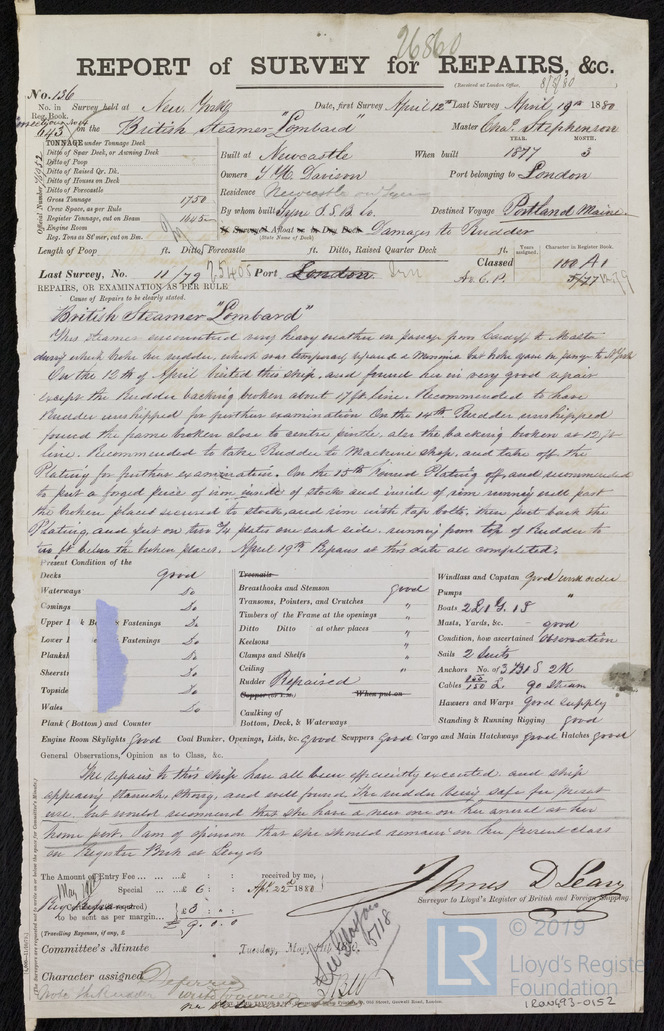 26860
REPORT of SURVEY for REPAIRS, &c.
(Received at London Office, 8/5/80
No. 136
No. in Survey held at New York Date, first Survey April 12th Last Survey April 19th 1880
Reg. Book.
643 on the British Steamer "Lombard" Master Chas. Stephenson
TONNAGE under Tonnage Deck
Ditto of Spar Deck, or Awning Deck
Ditto of Poop
Ditto of Raised Qr. Dk.
Ditto of Houses on Deck
Ditto of Forecastle
Gross Tonnage 1750
Crew Space, as per Rule
Register Tonnage, cut on Beam 1645
Engine Room
Reg. Tons as St'mer, cut on Bm.
Official Number 76952
YEAR. MONTH.
Built at Newcastle When built 1877 3
Owners Davison Port belonging to London
Residence Newcastle on Tyne
By whom built Tyne I. S. B. Co. Destined Voyage Portland Maine.
If Surveyed Afloat or in Dry Dock Damages to Rudder
(State Name of Dock)
Length of Poop ft. Ditto, Forecastle ft. Ditto, Raised Quarter Deck ft.
Years assigned. Character in Register Book.
Classed 100 A1
A. & C. P. 5/77
Last Survey, No. 11/79 25405 Port London
REPAIRS, OR EXAMINATION AS PER RULE
Cause of Repairs to be clearly stated.
British Steamer "Lombard"
This steamer encountered very heavy weather on passage from Cardiff to Malta
during which broke her rudder, which was temporary repaired a Messina but broke again on passage to N York
On the 12th of April visited this ship, and found her in very good repair
except the Rudder backing broken about 17 ft line. Recommended to have
Rudder unshipped for further examination On the 14th Rudder unshipped
found the frame broken close to centre pintle, also the backing broken at 12 ft
line. Recommended to take Rudder to Machine shop, and take off the
Plating for further examination. On the 15th found Plating off, and recommended
to put a forged piece of iron inside of stock and inside of rim running well past
the broken places secured to stock, and rim with tap bolts. then put back the
Plating, and put on two plates one each side. running from top of Rudder to
two ft below the broken places. April 19th Repairs at this date all completed.
Present Condition of the
Decks Good
Waterways Do
Comings Do
Upper Fastenings Do
Lower Fastenings Do
Planksh Do
Sheerst Do
Topside Do
Wales Do
Plank (Bottom) and Counter
Treenails
Breasthooks and Stemson Good
Transoms, Pointers, and Crutches "
Timbers of the Frame at the openings "
Ditto Ditto at other places "
Keelsons "
Clamps and Shelfs "
Ceiling "
Rudder Repaired
Copper When put on
Caulking of
Bottom, Deck, & Waterways
Windlass and Capstan Good work order
Pumps "
Boats
Masts, Yards, &c. good
Condition, how ascertained Observation
Sails 2 Suits
Anchors No. of 3 B 1 S 2 K
Cables 90 Stream
Hawsers and Warps Good supply
Standing & Running Rigging Good
Engine Room Skylights Good Coal Bunker. Openings, Lids, &c. Good Scuppers Good Cargo and Main Hatchways Good Hatches Good
General Observations, Opinion as to Class, &c.
The repairs to this ship have all been efficiently executed and ship
appearing staunch, strong, and well found. The rudder being safe for present
use, but would recommend that she have a new one on her arrival at her
home port. I am of opinion that she should remain on her present class
on Register Book at Lloyds
The Amount of Entry Fee £ : : received by me,
Special £ 6 : : Ap. 22d 1880
(Certificate if required) £3 : :
to be sent as per margin £ 9. 0. 0
(Travelling Expenses, if any, £ )
James D Leary
Surveyor to Lloyd's Register of British and Foreign Shipping.
Committee's Minute Tuesday, May
Character assigned Deferred
© 2019
LR
Lloyd's Registe
Foundation
LRON493-0152